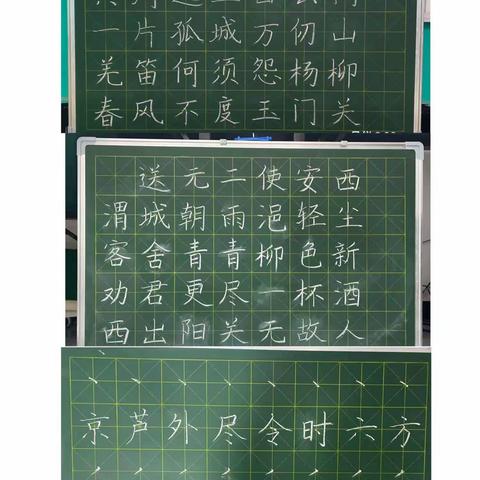 一片孤城万仞山
羌笛何须怨杨柳
春风不度玉门关
送元二使安西
渭城朝雨浥轻尘
客舍青青柳色新
劝君更尽一杯酒
西出阳关无故人
京芦外尽令时六方